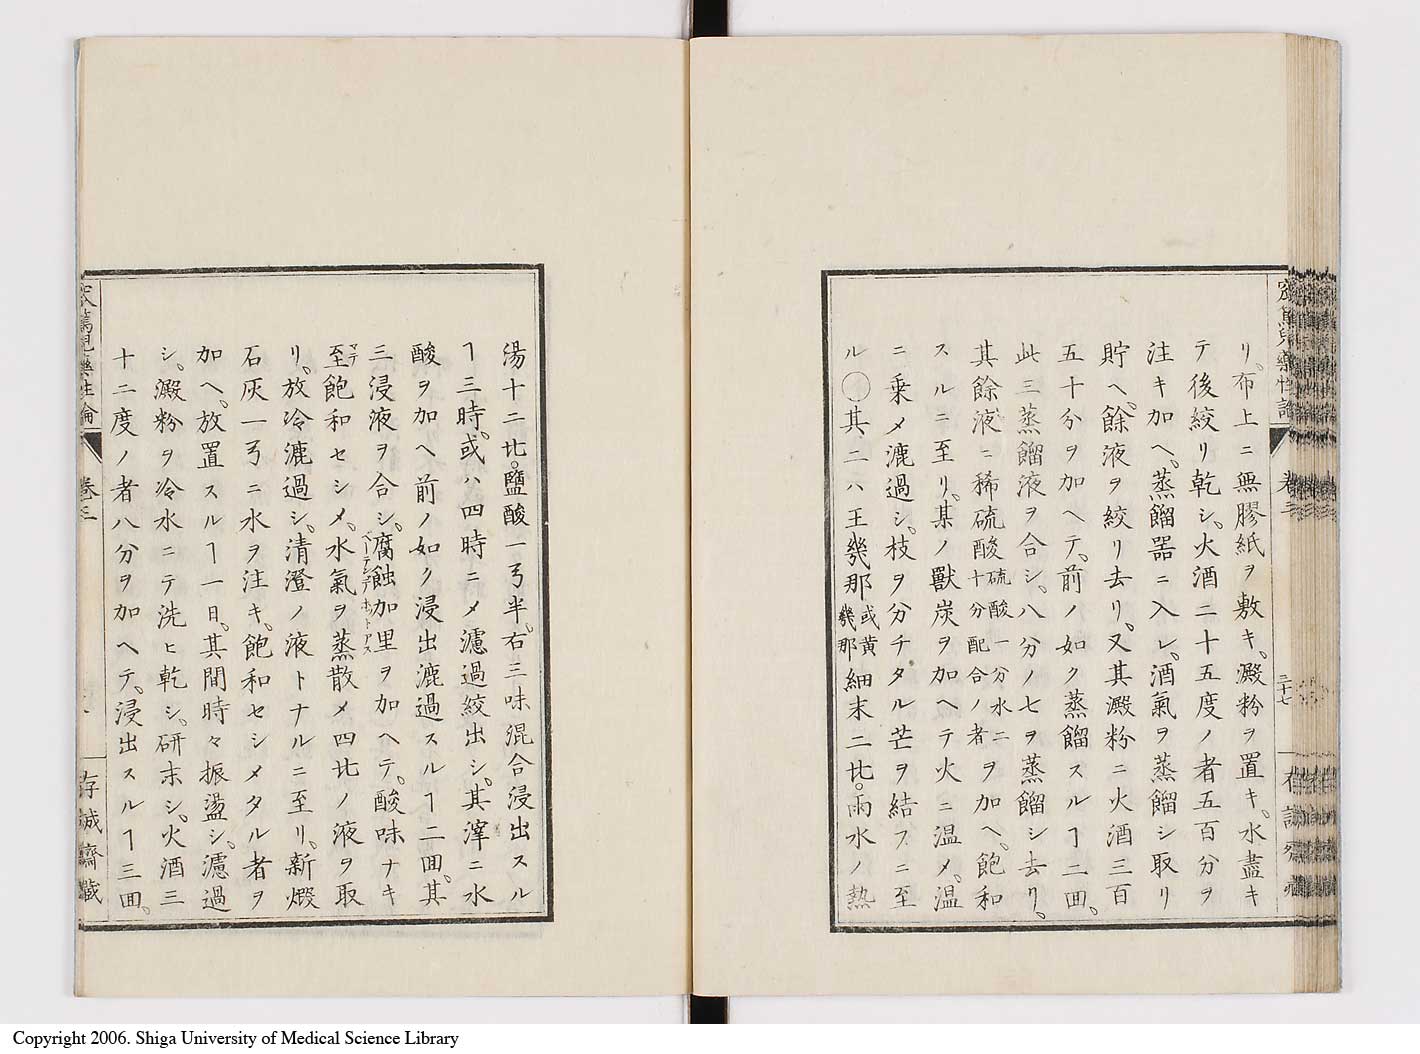 リ。布上ニ無膠紙ヲ敷キ。澱粉ヲ置キ。水盡キ
テ後絞リ乾シ。火酒二十五度ノ者五百分ヲ
注キ加ヘ。蒸餾器ニ入レ。酒氣ヲ蒸餾シ取リ
貯ヘ。餘液ヲ絞リ去リ。又其澱粉ニ火酒三百
五十分ヲ加ヘテ。前ノ如ク蒸餾スルヿ二回。
此三蒸餾液ヲ合シ。八分ノ七ヲ蒸餾シ去リ。
其餘液ニ稀硫酸硫酸一分水ニ十分配合ノ者ヲ加ヘ。飽和
スルニ至リ。某ノ獸炭ヲ加ヘテ火ニ温メ。温
ニ乘メ漉過シ。枝ヲ分チタル芒ヲ結フニ至
ル◯其二ハ王幾那或黄幾那細末二匕。雨水ノ熱
卷三
三十七
湯十二匕。鹽酸一弓半。右三味混合浸出スル
ヿ三時。或ハ四時ニメ濾過絞出シ。其滓ニ水
酸ヲ加ヘ前ノ如ク浸出漉過スルヿ二回。其
三浸液ヲ合シ。腐蝕加里ヲ加ヘテ。酸味ナキ
至マテ飽和セシメ。水氣ヲ蒸散メ四匕ノ液ヲ取
リ。放冷漉過シ。清澄ノ液トナルニ至リ。新煆
石灰一弓ニ水ヲ注キ。飽和セシメタル者ヲ
加ヘ。放置スルヿ一日。其間時々振盪シ。濾過
シ。澱粉ヲ冷水ニテ洗ヒ乾シ。研末シ。火酒三
十二度ノ者八分ヲ加ヘテ。浸出スルヿ三回。
藥性論
卷三
存誠齋藏
Copyright 2006. Shiga University of Medical Science Library